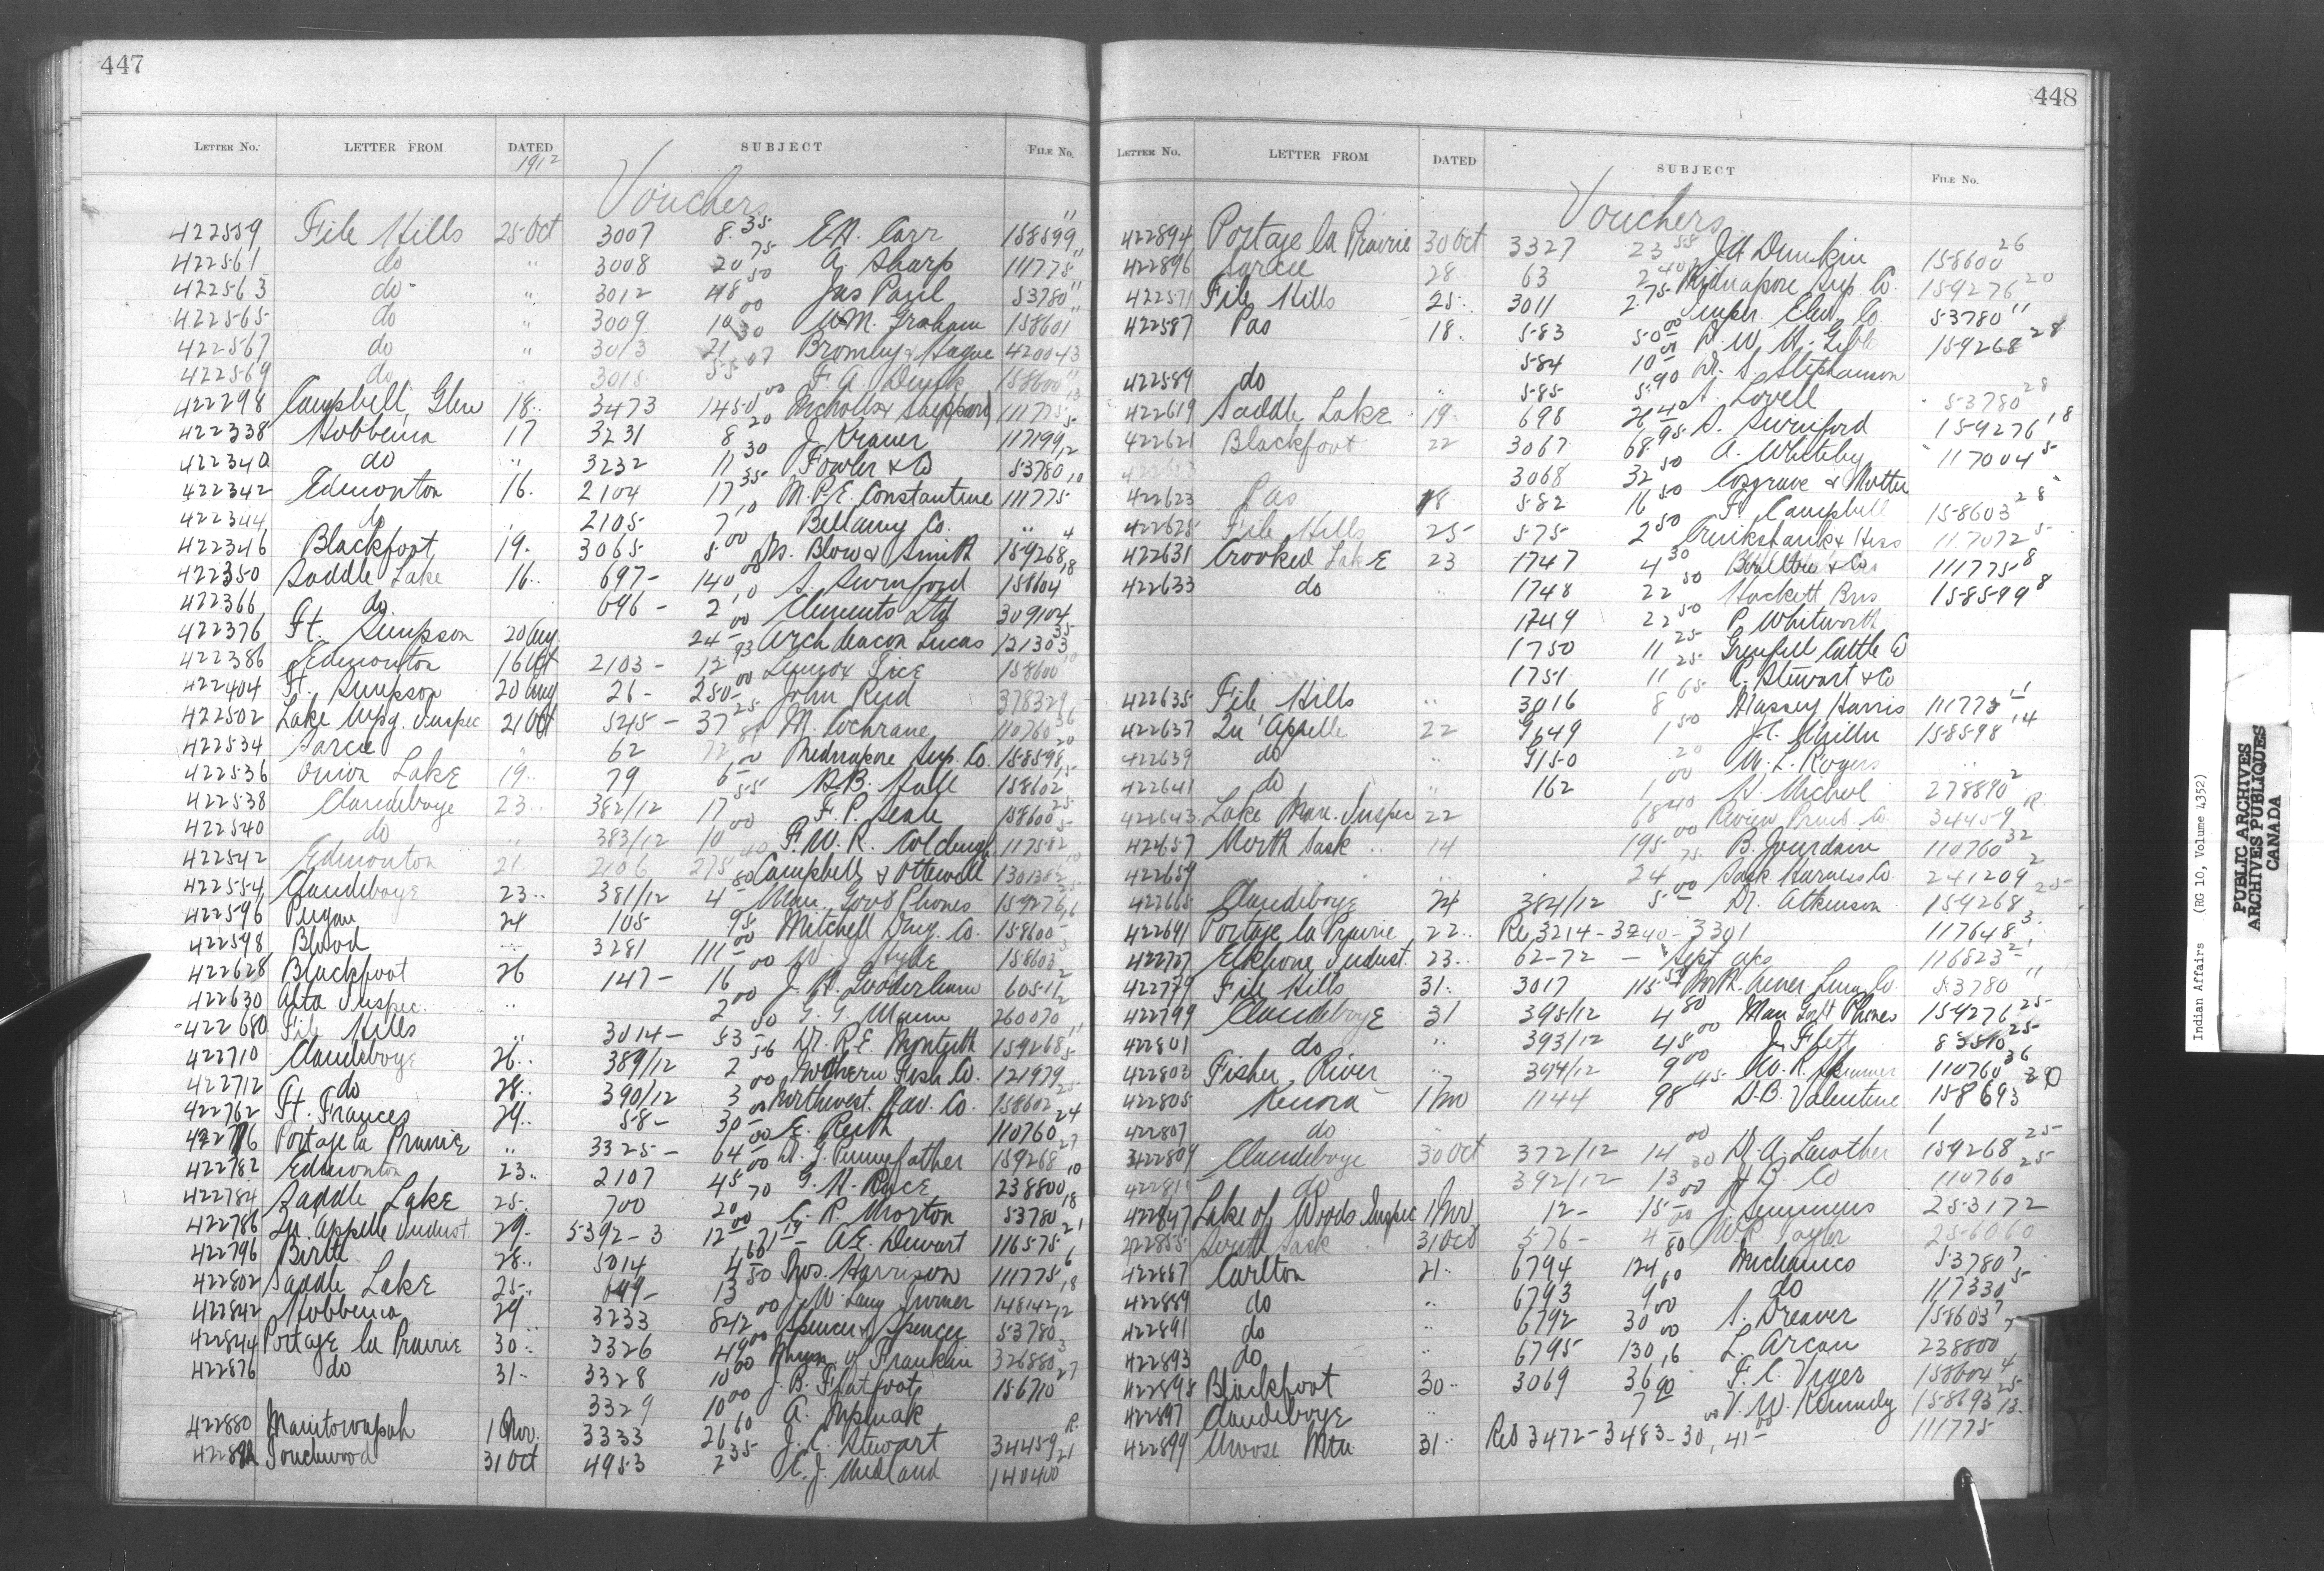 447
LETTER No. LETTER FROM DATED SUBJECT FILE No.
1912
Vouchers
422559 File Hills 25 Oct 3007 8.35 E.H. Carr 158599 11
422561 do " 3008 20 75 A. Sharp 111775 11
422563 do " 3012 48 50 Jas Paul 53780 11
422565 do " 3009 10 00 W.M. Graham 158601 11
422567 do " 3013 21 30 Bromley & Hague 420043
422569 do " 3015 55 07 F. A. 158600 11
422298 Campbell, Glen 18 " 3473 1450 00 Nicholls & Sheppard 111775 13
422338 Hobbema 17 3231 8 20 J. Kramer 117199 5
422340 do " 3232 11 30 Fowler & Co 53780 12
422342 Edmonton 16 " 2104 17 35 M. P. E. Constantine 111775 10
422344 do " 2105 7 10 Bellamy Co. " "
422346 Blackfoot 19 " 3065 5 00 Drs. Blow & Smith 159268 4
422350 Saddle Lake 16 " 697 - 140 00 S. Swinford 158604 18
422366 do 696 - 2 10 Clements Ltd 309104
422376 Ft. Simpson 20 Aug. 24 00 Archdeacon Lucas 121303 35
422386 Edmonton 16 Oct 2103 - 12 93 Lennox 158600 10
422404 Ft. Simpson 20 Aug 26 - 250 00 John Reid 378329
422502 Lake Wpg. Inspec 21 Oct 545 - 37 25 M. Cochrane 110760 36
422534 Sarcee " 62 72 Midnapore Sup. Co. 158598 20
422536 Onion Lake 19 " 79 6 00 H.B. Hall 158602 15
422538 Clandeboye 23 " 382/12 17 55 F. P. Seale 158600 25
422540 do " 383/12 10 00 F. W. R. Colcleugh 117582 5
422542 Edmonton 21 2106 275 40 Campbell & Ottewell 130138 10
422554 Clandeboye 23 " 381/12 4 80 Man. Govt Phones 159276 25
422596 Peigan 24 105 95 Mitchell Drug. Co. 158600 6
422598 Blood 3281 111 00 W. J. Hyde 158603 5
422628 Blackfoot 26 147 - 16 00 J. H. Gooderham 60511 2
422630 Alta Inspec. " 2 00 G. G. Mann 260070 2
422680 File Hills " 3014 - 53 00 Dr. R. E. Monteith 159268 11
422710 Clandeboye 26 " 389/12 2 56 Northern Fish Co. 121979 5
422712 do 28 " 390/12 3 00 Northwest Nav. Co. 158602 25
422762 Ft. Frances 29 " 58 - 30 00 E. Keith 110760 24
422776 Portage la Prairie " 3325 - 64 00 Dr. J. Pennefather 159268 27
422782 Edmonton 23 " 2107 45 00 G. H. Race 238800 10
422784 Saddle Lake 25 " 700 20 70 C. P. Morton 53780 18
422786 Qu'Appelle Indust. 29 - 5392-3 12 00 71 19 A.E. Dewart 116575 21
422796 Birtle 28 " 5014 4 60 Thos. Harrison 111775 6
422802 Saddle Lake 25 " 699 - 13 50 W. Lang Turner 148142 18
422842 Hobbema 29 3233 842 00 Spencer & Spencer 53780 12
422844 Portage la Prairie 30 " 3326 49 00 Munn. of Franklin 326880 3
422876 do 31 - 3328 10 00 J. B. Flatfoot 156710 27
3329 10 00 A.
422880 Manitowapah 1 Nov. 3333 26 60 J. C. Stewart 34459 R.
Touchwood 31 Oct 4953 2 35 E. J. Midland 140400 21
448
LETTER No. LETTER FROM DATED SUBJECT FILE No.
Vouchers
422894 Portage la Prairie 30 Oct 3327 23 55 J H Dunkin 158600 26
422896 Sarcee 28 63 2 40 Midnapore Sup. Co. 159276 20
422571 File Hills 25 " 3011 2 75 Imper. Elev. Co. 53780 11
422587 Pas 18 " 583 50 00 D. W. H. 159268 28
584 10 00 Dr. S. Stephenson
422589 do " 585 5 90 A. Lovell 53780 28
422619 Saddle Lake 19 " 698 26 42 S. Swinford 159276 18
422621 Blackfoot 22 3067 68 95 A. Whiteley 117004 5
3068 32 50 Cosgrave &
422623 Pas 18 582 16 50 F. Campbell 158603 28
422625 File Hills 25 575 2 50 Cruikshank & Hess 117072 5
422631 Crooked Lake 23 1747 4 30 111775 8
422633 do " 1748 22 50 Hackett Bros 158599 8
1749 22 50 P. Whitworth
1750 11 25 Grenfell Cattle Co
1751 11 25 R. Stewart & Co
422635 File Hills " 3016 8 65 Massey Harris 111775 11
422637 Qu'Appelle 22 9149 1 50 J. C. Miller 158598 14
422639 do " 9150 20 W. L. Rogers "
422641 do " 162 1 00 A. Michel 278890 2
422643 Lake Man. Inspec 22 68 40 Review Print. Co. 34459 R.
422657 North Sask " 14 195 00 B. Jourdain 110760 32
422659 " 24 75 Sask Harness Co. 241209 2
422665 Clandeboye 24 384/12 5 00 Dr. Atkinson 159268 25
422691 Portage la Prairie 22 " Re 3214 - 3240 - 3301 117648 3
422727 Elkhorn Indust. 23 " 62-72 - Sept. a/cs 116823 2
422779 File Hills 31 " 3017 115 Nor. R. 53780 11
422799 Clandeboye 31 395/12 4 80 Man Govt Phones 159276 25
422801 do " 393/12 45 00 J. Flett 83510 25
422803 Fisher River " 394/12 9 00 W. R. Skinner 110760 36
422805 Kenora 1 Nov 1144 98 45 D.B. Valentine 158693 30
422807 do "
422809 Clandeboye 30 Oct 372/12 14 00 Dr. A. Lawther 159268 25
do 392/12 13 30 H B. Co 110760 25
422847 Lake of Woods Inspec 1 Nov 12 - 15 00 J. Semmens 253172
422855 South Sask " 31 Oct 576 - 4 00 W. R. Taylor 256060
422887 Carlton 21 " 6794 124 80 Mechanics 53780 7
422889 do " 6793 9 60 do 117330 5
422891 do " 6792 30 00 S. Dreaver 158603 7
422893 do " 6795 130 00 L. Arcan 238800 7
422895 Blackfoot 30 " 3069 36 16 F. C. Vyger 158604 4
422897 Clandeboye " 7 90 V. W. Kennedy 158693 25
422899 Moose Mtn 31 " Red 3472 - 3483 - 30 00, 41 00 111775 13
Indian Affairs (RG 10, Volume 4352)
PUBLIC ARCHIVES
ARCHIVES PUBLIQUES
CANADA